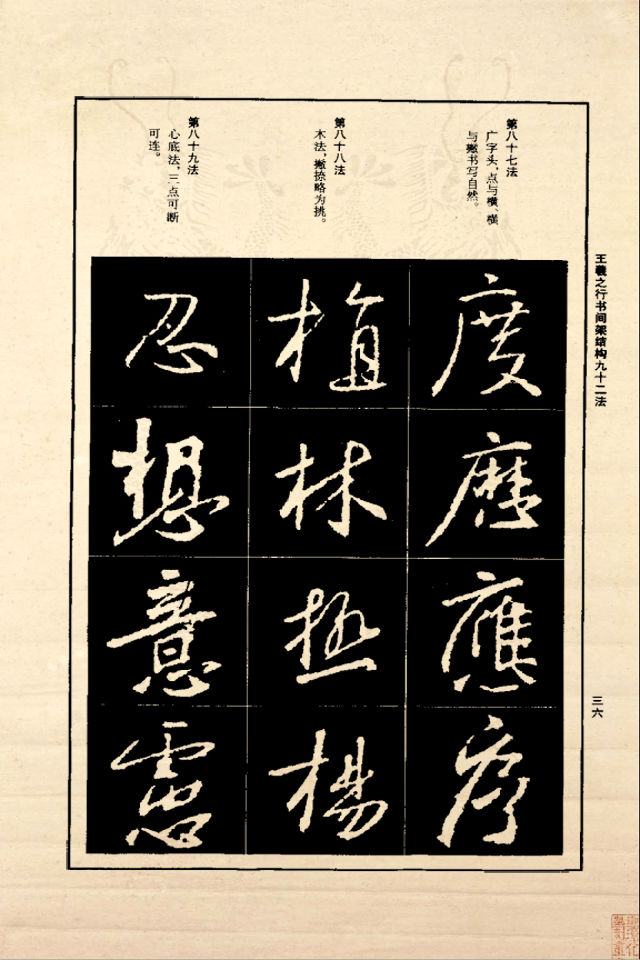 王羲之行书间架结构九十二法
三六
第八十七法
广字头，点与横、横
与撇书写自然。
度
磨
應
序
第八十八法
木法，撇捺略为挑。
植
林
極
楊
第八十九法
心底法，三点可断
可连。
忍
想
意